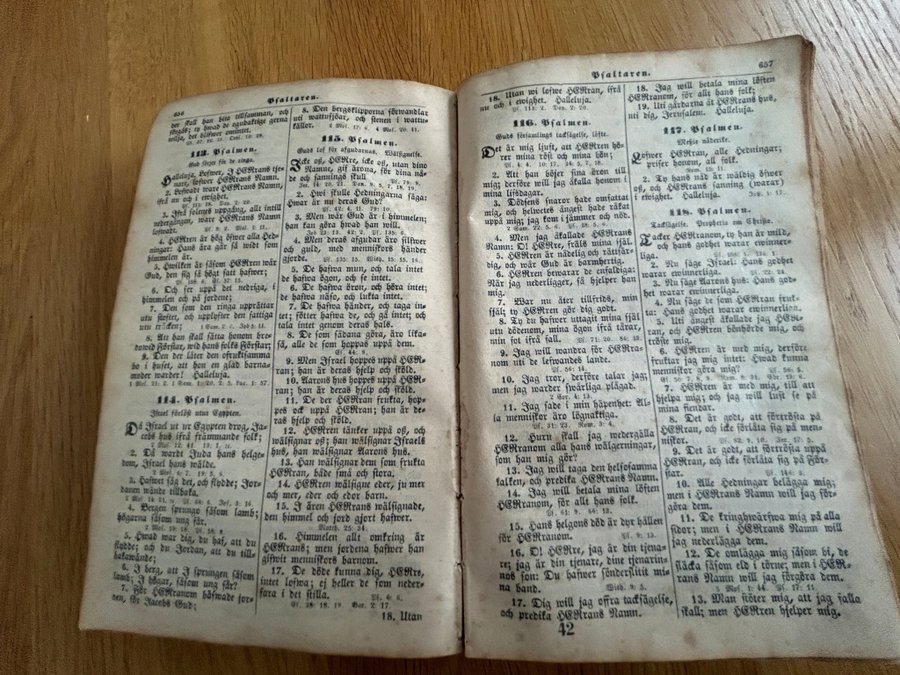 656
Psaltaren.
der skall han bita tillsamman, och
förgås; ty hwad de ogudaktige gerna
wilja, det blifwer omintet.
113. Psalmen.
Gud sörjer för de ringa.
Halleluja. Lofwer, I HERrans tje-
nare, lofwer HERrans Namn.
2. Lofwadt ware HERrans Namn,
ifrå nu och i ewighet.
3. Ifrå solenes uppgång, allt intill
nedergången, ware HERrans Namn
lofwadt.
4. HERren är hög öfwer alla Hed-
ningar: Hans ära går så widt som
himmelen är.
5. Hwilken är såsom HERren wår
Gud, den sig så högt satt hafwer;
6. Och ser uppå det nedriga, i
himmelen och på jordene;
7. Den som den ringa upprättar
utu stoftet, och upplyfter den fattiga
utu träcken;
8. Att han skall sätta honom bre-
dowid Förstar, wid hans folks Förstar;
9. Den der låter den ofruktsamma
bo i huset, att hon en glad barna-
moder warder! Halleluja.
114. Psalmen.
Israel förlöst utun Egypten.
Då Israel ut ur Egypten drog, Ja-
cobs hus ifrå främmande folk;
2. Då wardt Juda hans helge-
dom, Israel hans wälde.
3. Hafwet såg det, och flydde; Jor-
danen wände tillbaka.
4. Bergen sprungo såsom lamb;
högarna såsom ung får.
5. Hwad war dig, du haf, att du
flydde; och du Jordan, att du till-
bakawände;
6. I berg, att I sprungen såsom
lamb; I högar, såsom ung får?
7. För HERranom bäfwade jor-
den, för Jacobs Gud;
8. Den bergsklipporna förwandlar
uti wattusjöar, och stenen i wattu-
källor.
115. Psalmen.
Guds lof för afgudarnas. Wälsignelse.
Icke oß, HERre, icke oß, utan dino
Namne, gif ärona, för dina nå-
de och sannings skull.
2. Hwi skulle Hedningarna säga:
Hwar är nu deras Gud?
3. Men wår Gud är i himmelen;
han kan göra hwad han will.
4. Men deras afgudar äro silfwer
och guld, med menniskors händer
gjorde.
5. De hafwa mun, och tala intet
de hafwa ögon, och se intet.
6. De hafwa öron, och höra intet;
de hafwa näso, och lukta intet.
7. De hafwa händer, och taga in-
tet; fötter hafwa de, och gå intet; och
tala intet genom deras hals.
8. De som sådana göra, äro lika-
så, alle de som hoppas uppå dem.
9. Men Israel hoppes uppå HER-
ran; han är deras hjelp och sköld.
10. Aarons hus hoppes uppå HER-
ran; han är deras hjelp och sköld.
11. De der HERran frukta, hop-
pes ock uppå HERran; han är de-
ras hjelp och sköld.
12. HERren tänker uppå oß, och
wälsignar oß; han wälsignar Israels
hus, han wälsignar Aarons hus.
13. Han wälsignar dem som frukta
HERran, både små och stora.
14. HERren wälsigne eder, ju mer
och mer, eder och edor barn.
15. I ären HERrans wälsignade,
den himmel och jord gjort hafwer.
16. Himmelen allt omkring är
HERrans; men jordena hafwer han
gifwit menniskors barnom.
17. De döde kunna dig, HERre,
intet lofwa; ej heller de som neder-
fara i det stilla.
18. Utan
Psaltaren.
657
18. Utan wi lofwe HERran, ifrå
nu och i ewighet. Halleluja.
116. Psalmen.
Guds församlings tacksägelse, löfte.
Det är mig ljuft, att HERren hö-
rer mina röst och mina bön;
2. Att han böjer sina öron till
mig; derföre will jag åkalla honom i
mina lifsdagar.
3. Dödsens snaror hade omfattat
mig, och helwetes ångest hade råkat
uppå mig; jag kom i jämmer och nöd.
4. Men jag åkallade HERrans
Namn: O! HERre, fräls mina själ.
5. HERren är nådelig och rättfär-
dig, och wår Gud är barmhertig.
6. HERren bewarar de enfaldiga:
När jag nederligger, så hjelper han
mig.
7. War nu åter tillfrids, min
själ; ty HERren gör dig godt.
8. Ty du hafwer uttagit mina själ
utu dödenom, mina ögon ifrå tårar,
min fot ifrå fall.
9. Jag will wandra för HERra-
nom uti de lefwandes lande.
10. Jag tror, derföre talar jag;
men jag warder swårliga plågad.
11. Jag sade i min häpenhet: Al-
la menniskor äro lögnaktiga.
12. Huru skall jag wedergälla
HERranom alla hans wälgerningar,
som han mig gör?
13. Jag will taga den helsosamma
kalken, och predika HERrans Namn.
14. Jag will betala mina löften
HERranom, för allt hans folk.
15. Hans helgons död är dyr hållen
för HERranom.
16. O! HERre, jag är din tjena-
re; jag är din tjenare, dine tjenarin-
nos son: Du hafwer sönderslitit mi-
na band.
17. Dig will jag offra tacksägelse,
och predika HERrans Namn.
42
18. Jag will betala mina löften
HERranom, för allt hans folk;
19. Uti gårdarna åt HERrans hus,
uti dig, Jerusalem. Halleluja.
117. Psalmen.
Meßie nåderike.
Lofwer HERran, alle Hedningar;
priser honom, all folk.
2. Ty hans nåd är wäldig öfwer
oß, och HERrans sanning (warar)
i ewighet. Halleluja.
118. Psalmen.
Tacksägelse. Prophetia om Christo.
Tacker HERranom, ty han är mild,
och hans godhet warar ewinner-
liga.
2. Nu säge Israel: Hans godhet
warar ewinnerliga.
3. Nu säge Aarons hus: Hans god-
het warar ewinnerliga.
4. Nu säge de som HERran fruk-
ta: Hans godhet warar ewinnerliga.
5. Uti ångest åkallade jag HER-
ran, och HERren bönhörde mig, och
tröste mig.
6. HERren är med mig, derföre
fruktar jag mig intet: Hwad kunna
menniskor göra mig?
7. HERren är med mig, till att
hjelpa mig; och jag will lust se på
mina fiendar.
8. Det är godt, att förtrösta på
HERran, och icke förlåta sig på men-
niskor.
9. Det är godt, att förtrösta uppå
HERran, och icke förlåta sig på För-
star.
10. Alle Hedningar belägga mig;
men i HERrans Namn will jag för-
göra dem.
11. De kringhwärfwa mig på alla
sidor; men i HERrans Namn will
jag nederlägga dem.
12. De omlägga mig såsom bi, de
släcka såsom eld i törne; men i HER-
rans Namn will jag förgöra dem.
13. Man stöter mig, att jag falla
skall; men HERren hjelper mig.